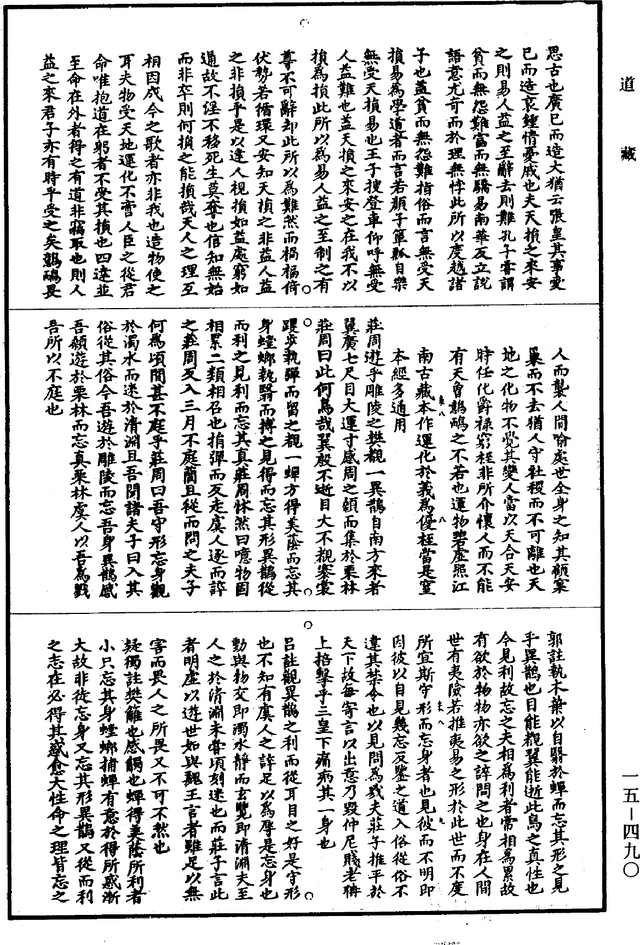 道藏
思古也廣已而造大猶云張皇其事愛
已而造哀鍾情憂戚也夫天損之來安
之則易人益之至辭去則難孔子嘗謂
貧而無怨難富而無驕易南華反立說
語意尤奇而於理無悖此所以度越諸
子也蓋貧而無怨難指俗而言無受天
損易為學道者而言若顏子簞瓢自樂
無受天損易也王子搜登車仰呼無受
人益難也蓋天損之來安之在我不以
損為損此所以為易人益之至制之有
尊不可辭却此所以為難然而禍福倚
伏勢若循環又安知天損之非益人益
之非損乎是以達人視損如益處窮如
通故不淫不移死生莫奪也信知無始
而非卒則何損之能損哉天人之理互
相因成今之歌者亦非我也造物使之
耳夫物受天地運化不啻人臣之從君
命唯抱道在躬者不受其損也四達並
至命在外者得之有道非竊取也則人
益之來君子亦有時乎受之矣鷾鴯畏
人而襲人間喻處世全身之知其顧窠
巢而不去猶人守社稷而不可離也天
地之化物不覺其變人當以天合天安
時任化爵祿窮桎非所介懷人而不能
有天曾鷾鴯之不若也運物碧虛照江
南古藏本作運化於義為優桎當是窒
本經多通用
莊周遊乎雕陵之樊覩一異鵲自南方來者
翼廣七尺目大運寸感周之顙而集於栗林
莊周曰此何鳥哉翼殷不逝目大不覩褰裳
躩步執彈而留之覩一蟬方得美蔭而忘其
身螳蜋執翳而搏之見得而忘其形異鵲從
而利之見利而忘其真莊周怵然曰噫物固
相累二類相召也捐彈而反走虞人逐而誶
之莊周反入三月不庭藺且從而問之夫子
何為頃間甚不庭乎莊周曰吾守形忘身觀
於濁水而迷於清淵且吾聞諸夫子曰入其
俗從其俗今吾遊於雕陵而忘吾身異鵲感
吾顙遊於栗林而忘真栗林虞人以吾為戮
吾所以不庭也
郭註執木葉以自翳於蟬而忘其形之見
乎異鵲也目能覩翼能逝此鳥之真性也
今見利故忘之夫相為利者常相為累故
有欲於物物亦欲之誶問之也身在人間
世有夷險若推夷易之形於此世而不度
所宜斯守形而忘身者也見彼而不明即
因彼以自見幾忘反鑒之道入俗從俗不
違其禁令也以見問為戮夫莊子推平於
天下故每寄言以出意乃毀仲尼賤老聃
上掊擊乎三皇下痛病其一身也
呂註觀異鵲之利而從耳目之好是守形
也不知有虞人之誶足以為辱是忘身也
動與物交即濁水靜而玄覽即清淵夫至
人之於清淵未嘗頃刻迷也而莊子言此
者明虛以遊世如與魏王言者雖足以無
害而畏人之所畏又不可不然也
疑獨註樊籬也感觸也蟬得美蔭所利者
小只忘其身螳螂捕蟬有意於得所惑漸
大故非徒忘身又忘其形異鵲又從而利
之志在必得其惑愈大性命之理皆忘之
一五－四九〇